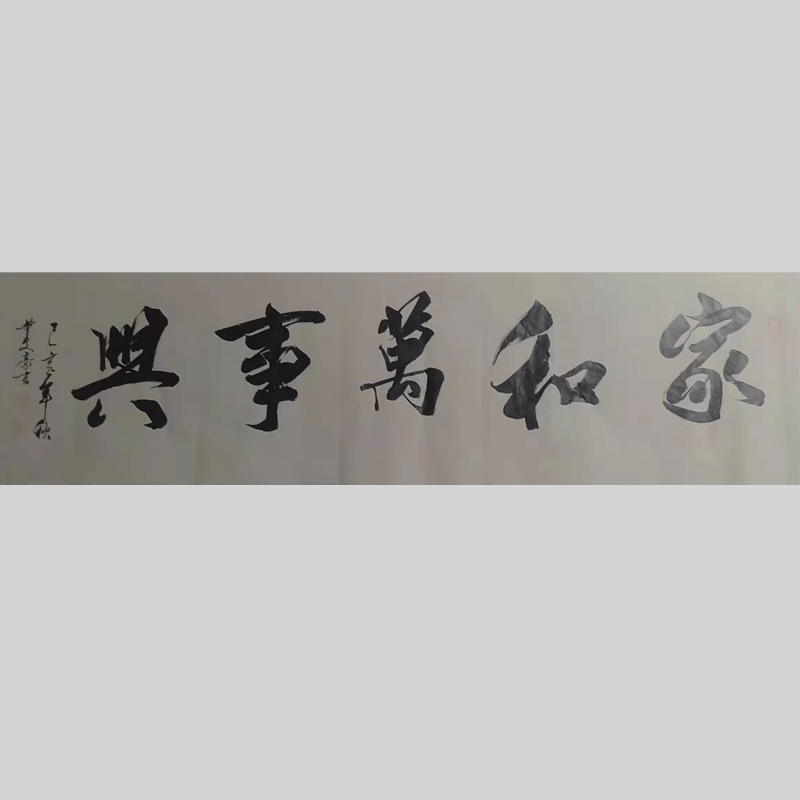 家和萬事興
己亥年秋